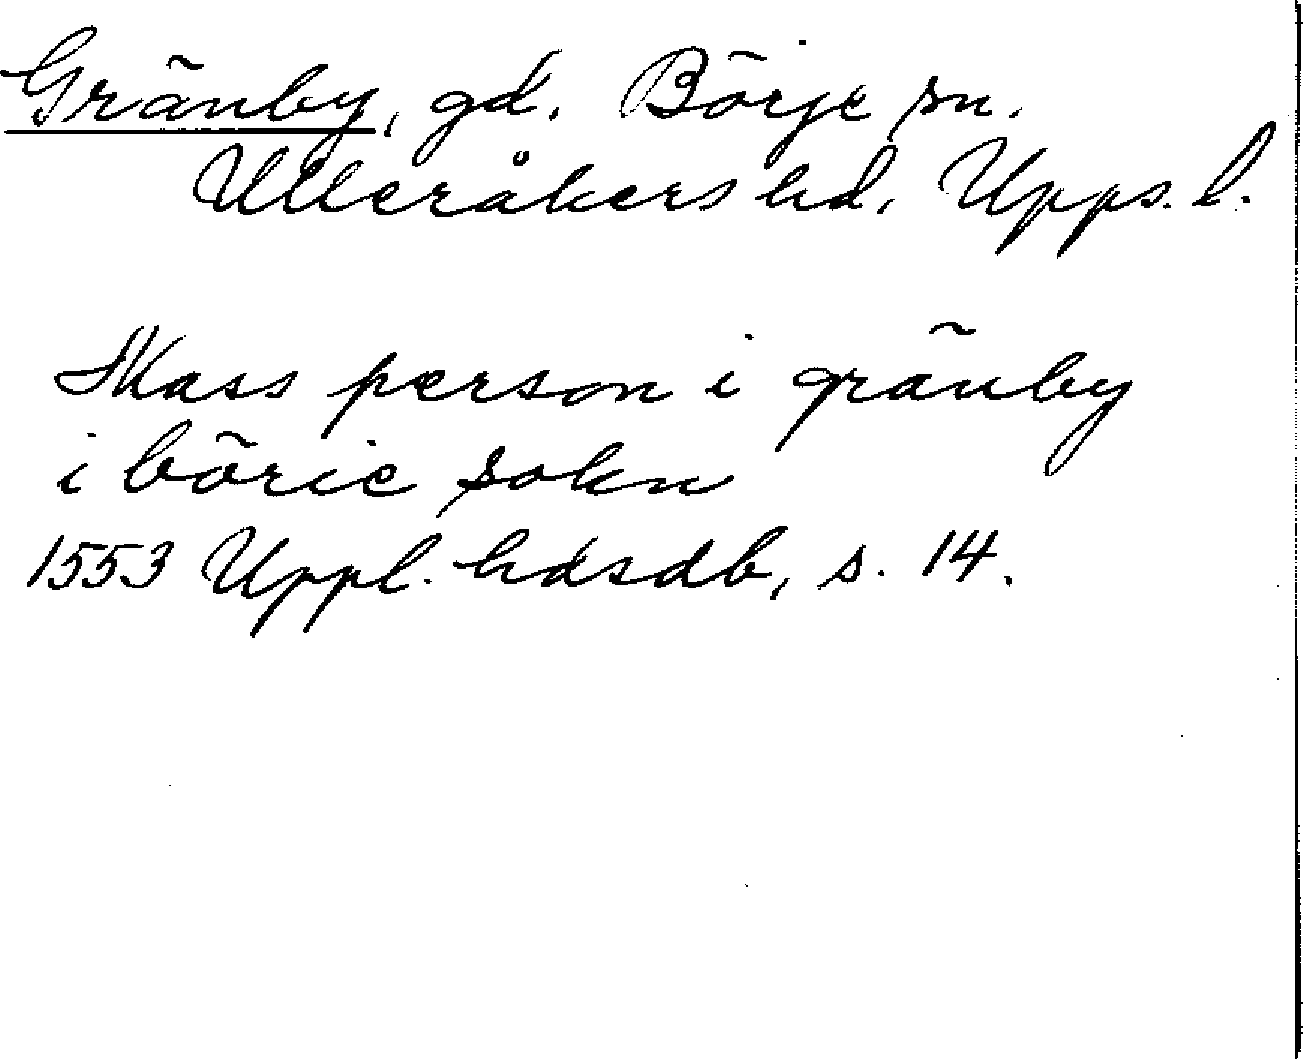 Gränby, gd. Börje sn.
Ulleråkers hd. Upps. l.
Mass person i gränby
i börie sokn
1553 Uppl. hdsdb, s. 14.